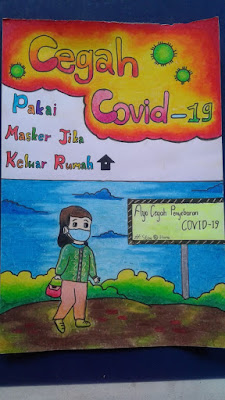 Cegah
Covid-19
Pakai
Masker Jika
Keluar Rumah
Ayo Cegah Penyebaran
COVID-19